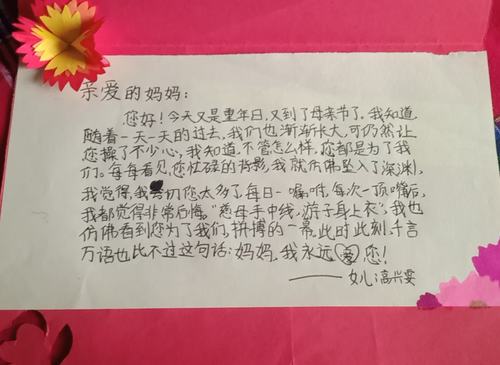 亲爱的妈妈：
您好！今天又是重年日，又到了母亲节了。我知道，
随着一天一天的过去，我们也渐渐长大，可仍然让
您操了不少心，我知道，不管怎么样，您都是为了我
们。每每看见，您忙碌的背影，我就仿佛坠入了深渊，
我觉得，我们您太多了，每日一嘱咐，每次一顶嘴后，
我都觉得非常后悔。“慈母手中线，游子身上衣”，我也
仿佛看到您为了我们，拼搏的一幕，此时此刻，千言
万语也比不过这句话：妈妈，我永远爱您！
——女儿：高兴雯